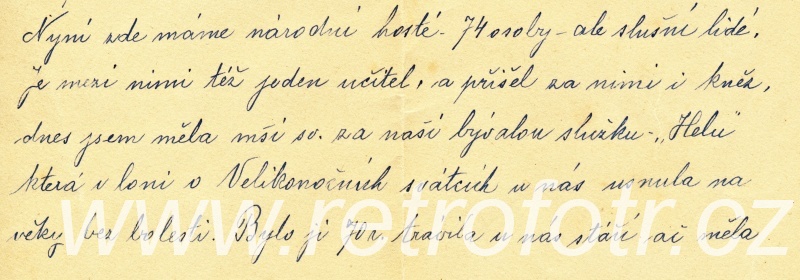 Nyní zde máme národní hosté - 74 osoby - ale slušní lidé,
je mezi nimi též jeden učitel, a přišel za nimi i kněz,
dnes jsem měla mši sv. za naší bývalou služku - „Helu"
která v loni o Velikonočních svátcích u nás usnula na
věky bez bolesti. Bylo jí 70 r. trávila u nás stáří ač měla
www.retrofotr.cz